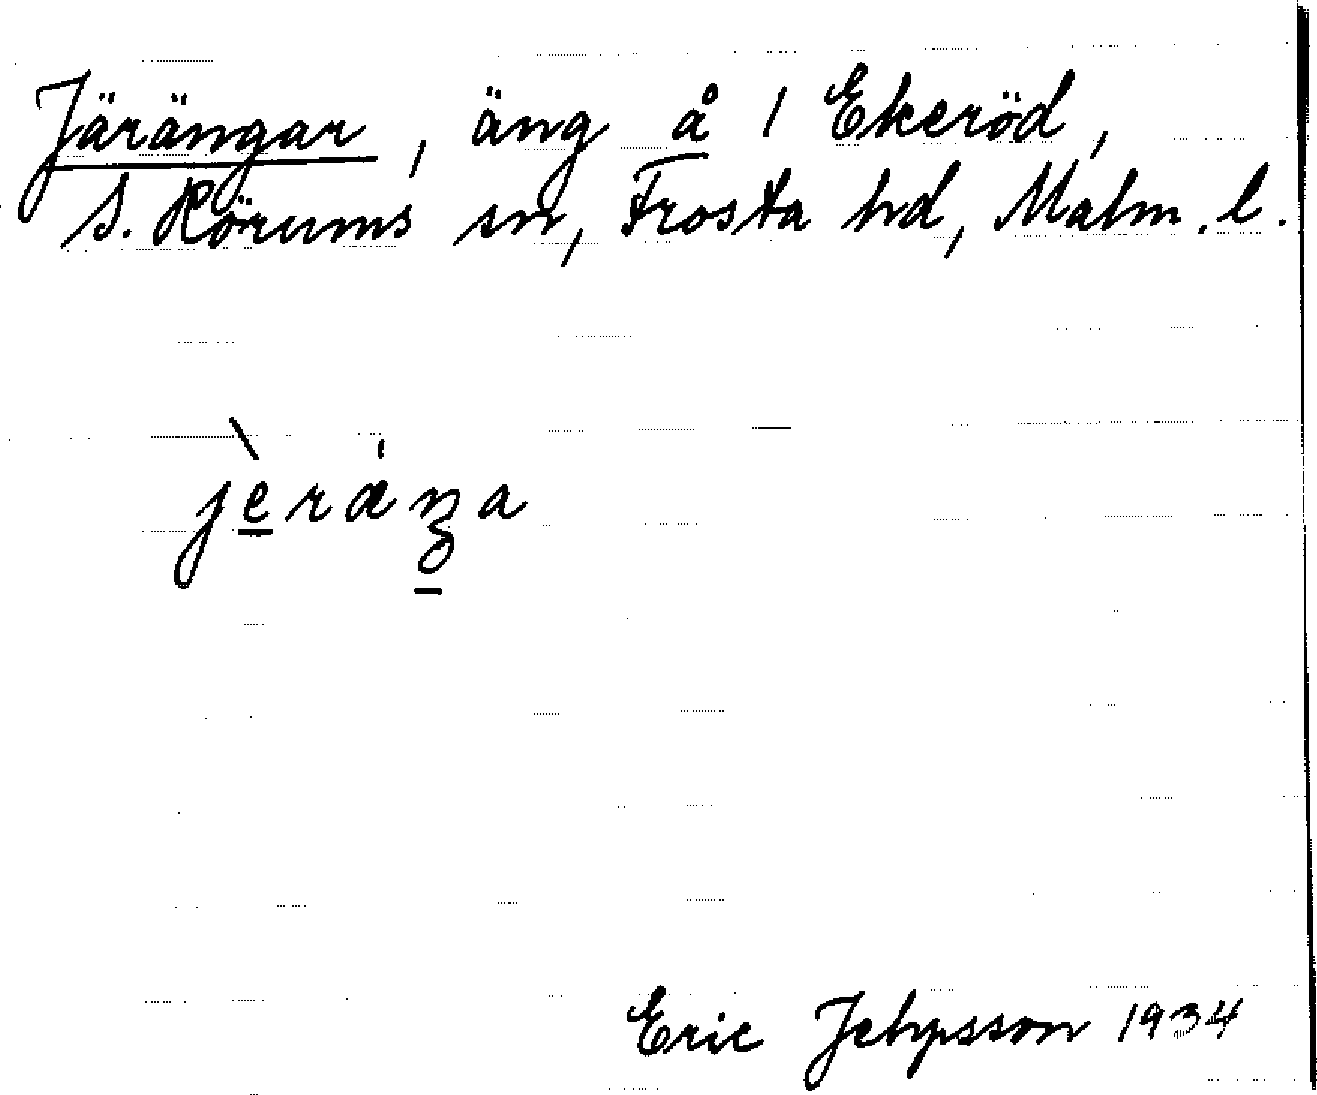 Järängar, äng å 1 Ekeröd,
S. Rörums sn, Frosta hd, Malm. l.
Eric Jepsson 1934